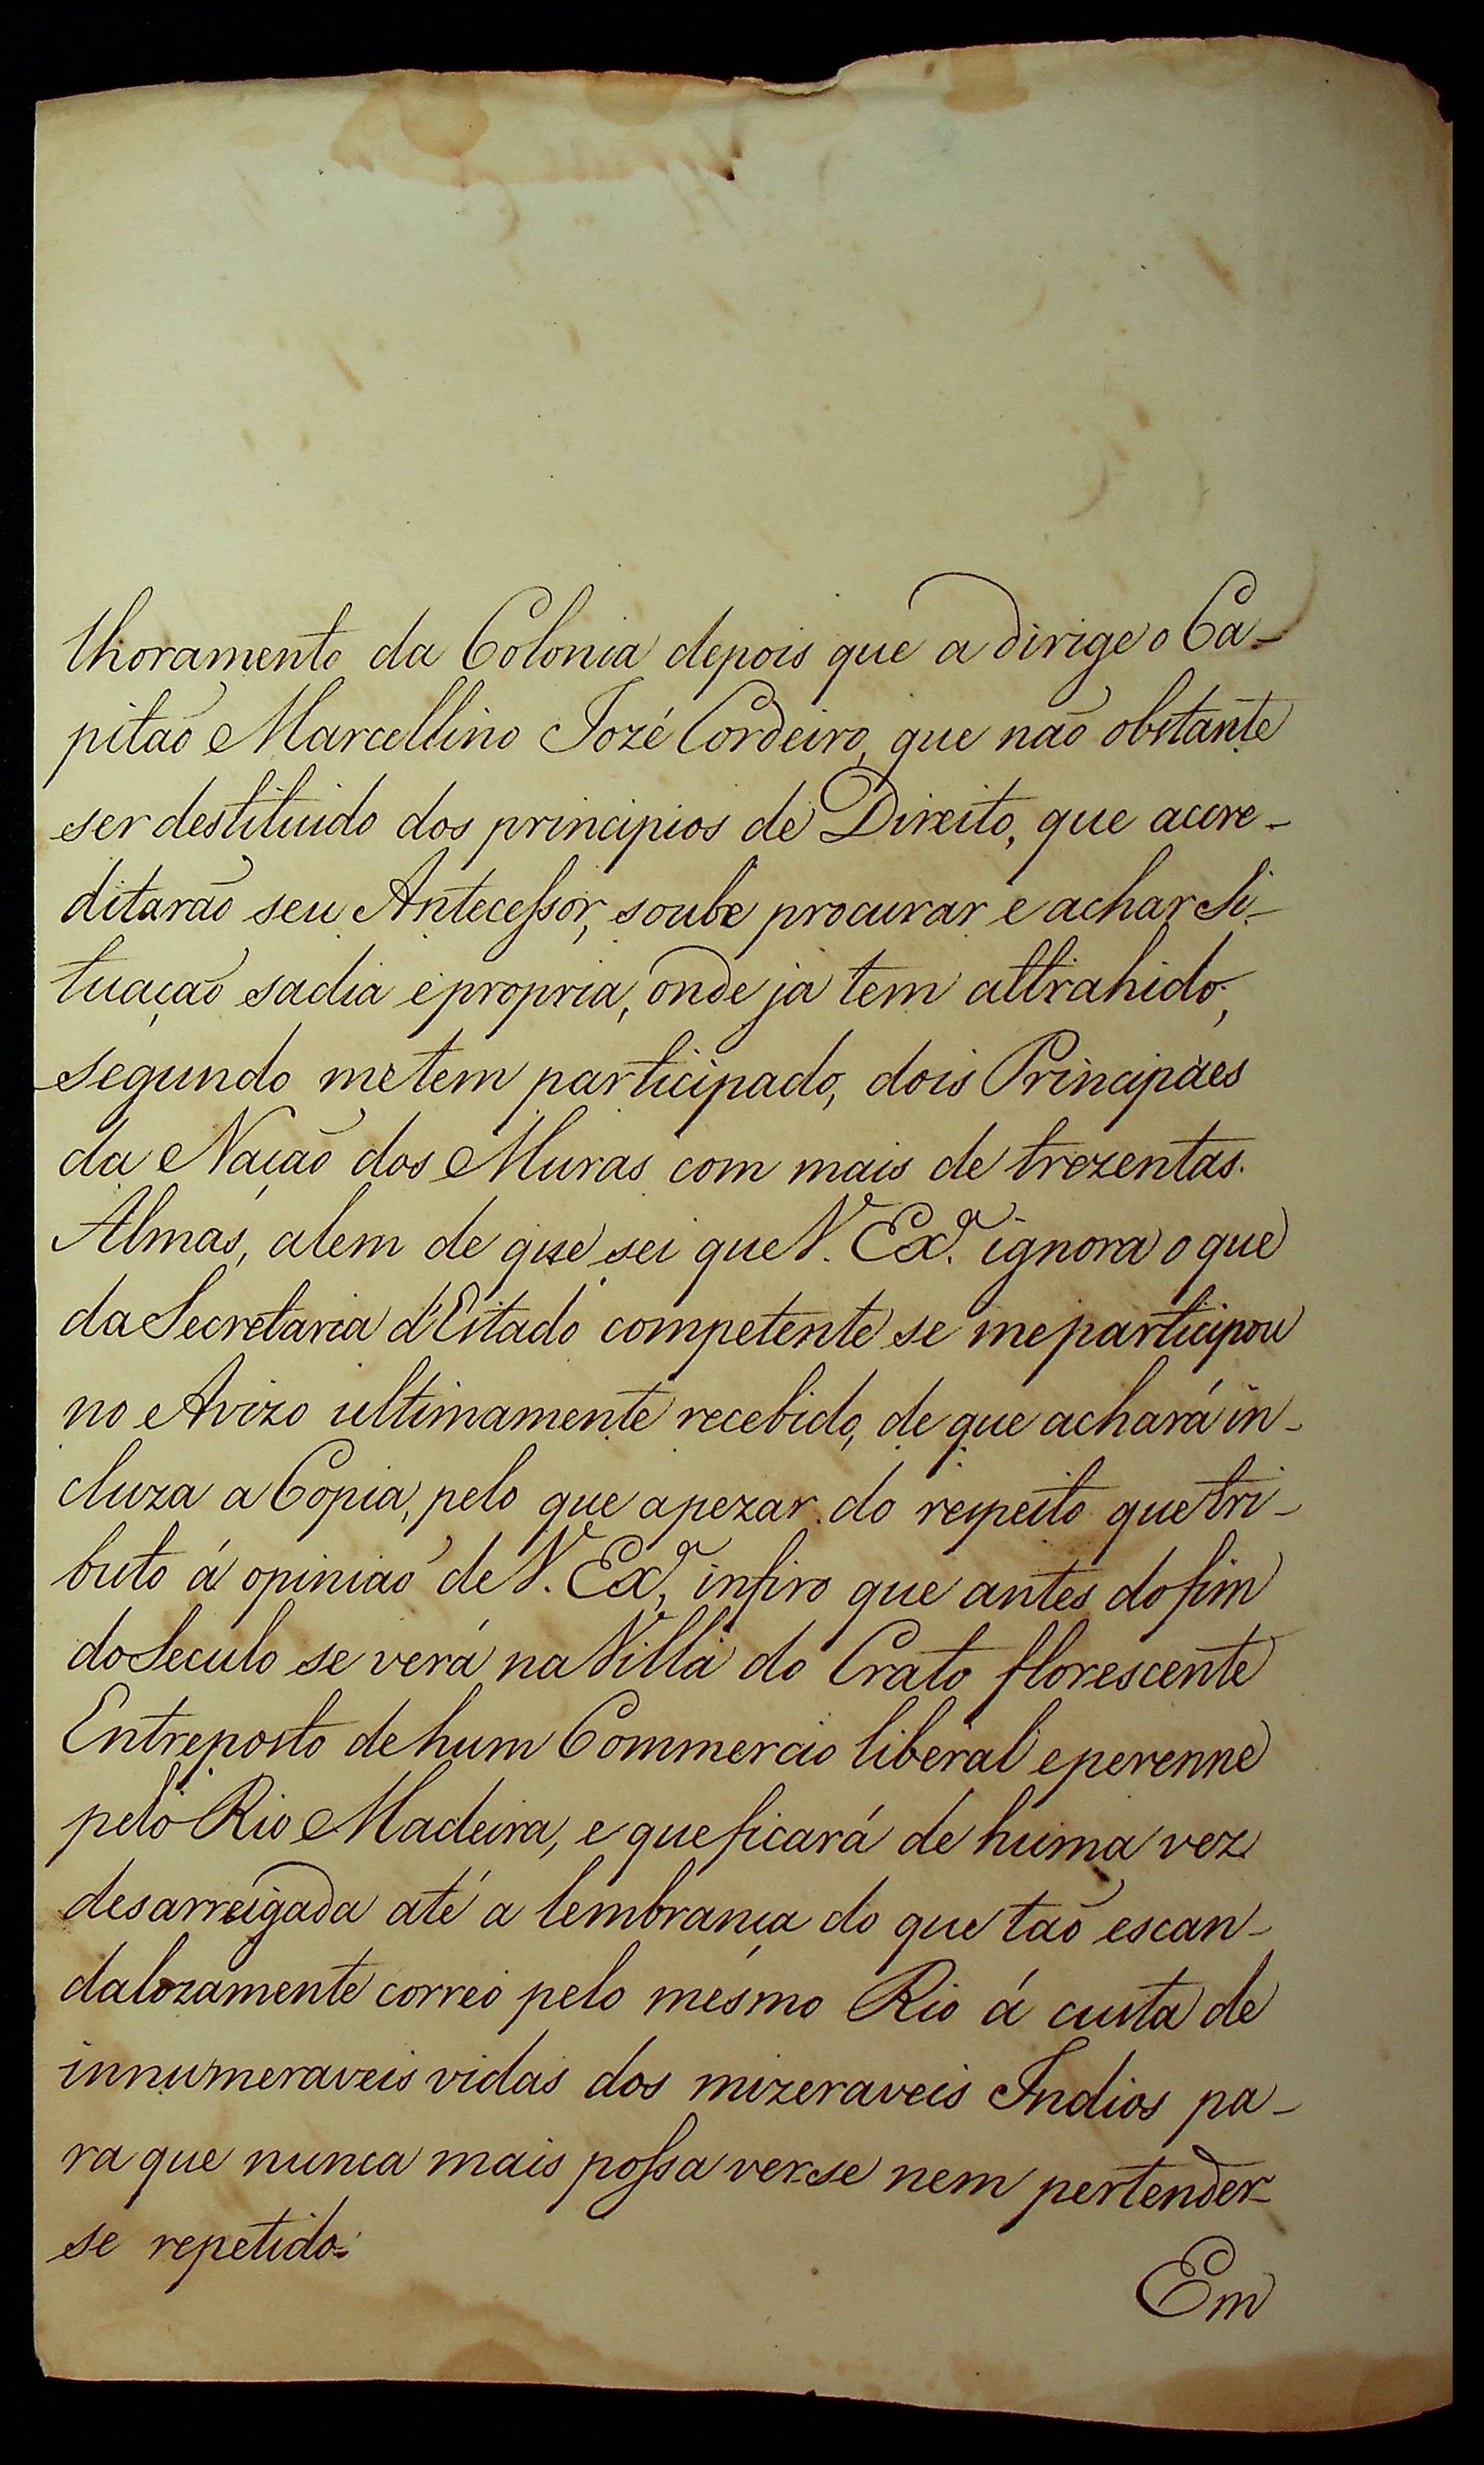 lhoramento da Colonia depois que a dirige o Ca-
pitaõ Marcellino Jozé Cordeiro, que naõ obstante
ser destituido dos principios de Direito, que acre-
ditaraõ seu Antecessor, soube procurar e achar Si-
tuaçaõ sadia e propria, onde ja tem attrahido,
segundo me tem participado, dois Principaes
da Naçaõ dos Muras com mais de trezentas
Almas, alem de que sei que V. Ex.ª ignora o que
da Secretaria d'Estado competente se me participou
no Avizo ultimamente recebido, de que achará in-
cluza a Copia, pelo que apezar do respeito que tri-
buto á opiniaõ de V. Ex.ª, infiro que antes do fim
do Seculo se verá na Villa do Crato florescente
Entreposto de hum Commercio liberal e perenne
pelo Rio Madeira, e que ficará de huma vez
desarreigada até a lembrança do que taõ escan-
dalozamente correo pelo mesmo Rio á custa de
innumeraveis vidas dos mizeraveis Indios pa-
ra que nunca mais possa verse nem pertender-
se repetido.
Em